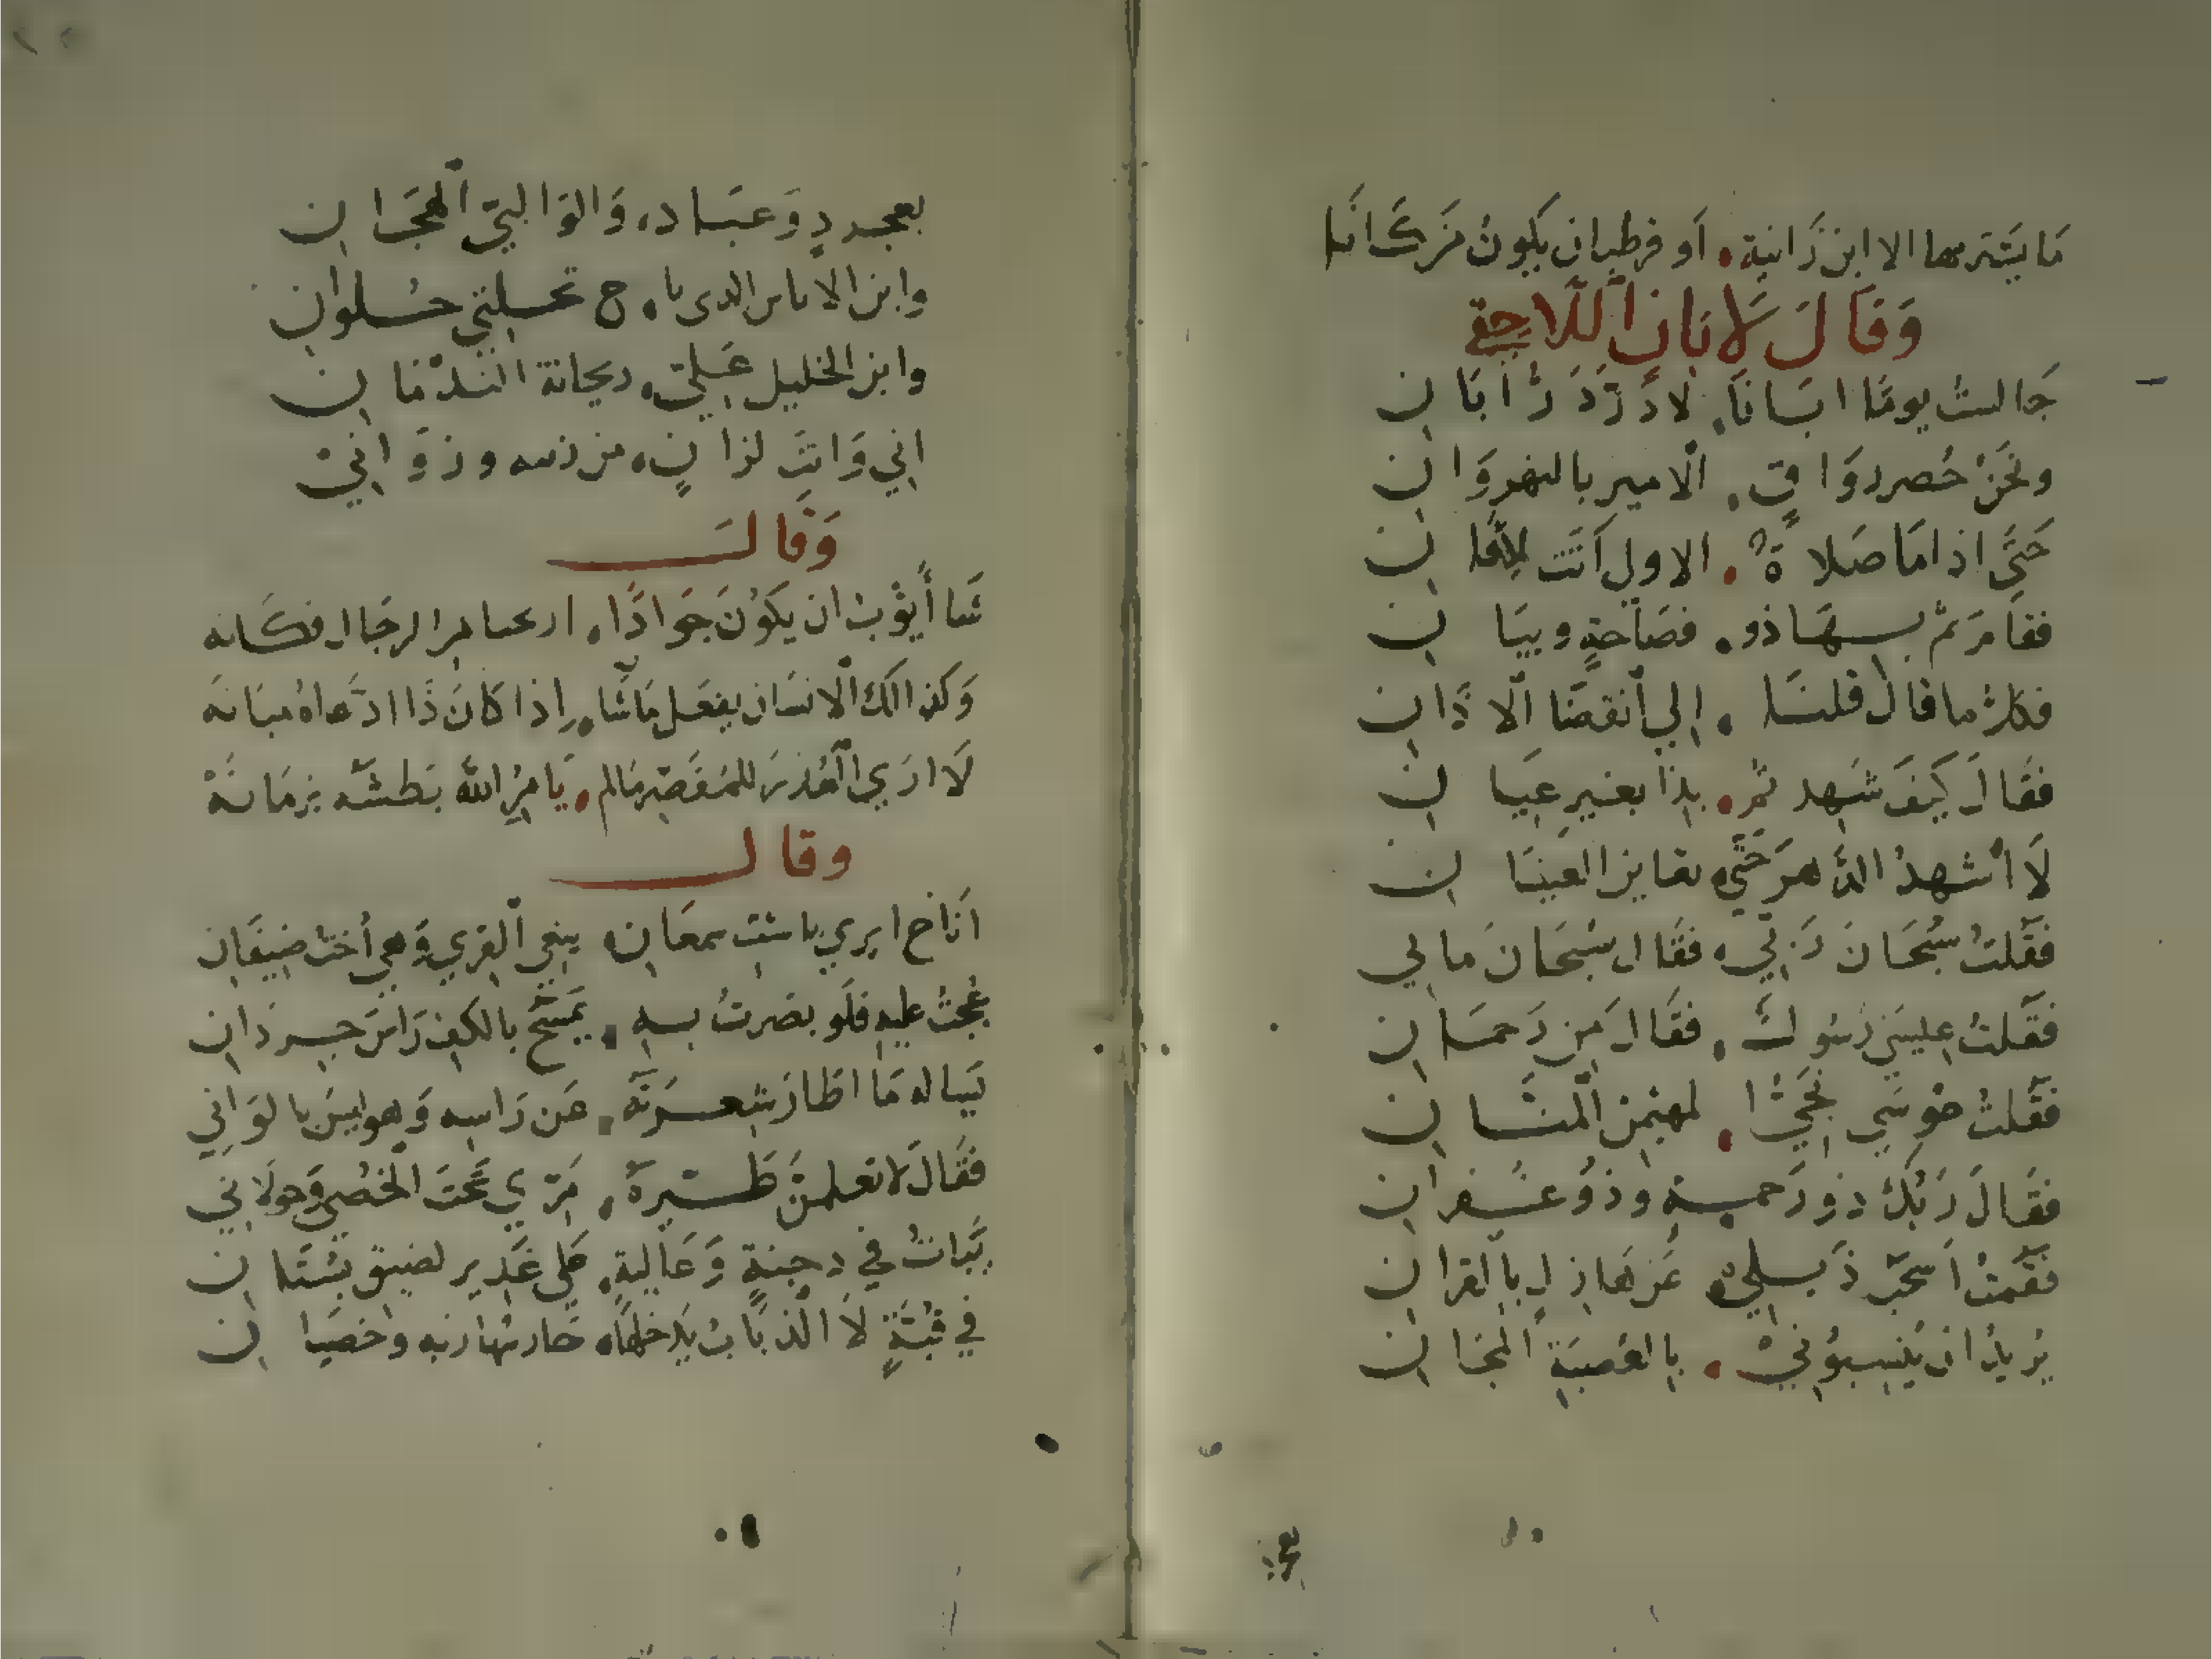 ما يشتريها الا ابن زانية. او فرطبان يكون من كانا
وَقَالَ لِأبَانِ اللَّاحِقي
جَالستُ يومًا ابَانًا. لادَرَّ دَرُّ ابَانِ
ونَحْنُ حُضر رِوَاقِ. الامير بالنهروَانِ
حَتَّى اذا مَا صَلاةُ. الاولى اتَت لِأَوَانِ
فقَامَ ثمَّ بِهَا ذو. فصَاحةٍ وبيَانِ
فكلُّ ما قال قلنَا. الي انقضَا الاذانِ
فقَالَ كيفَ شهدتمُ. بِذا بغيرِ عيَانِ
لَا اشهدُ الدَّهرَ حَتَّى. تعاينَ العينَانِ
فقُلتُ سُبحَانَ رَبّي. فقَال سُبحَانَ مَانِي
فقُلتُ عِيسَى رَسُولٌ. فقَالَ مِن رَحمَانِ
فقُلتُ مُوسَي نجيُّ. المهيمن المنَّانِ
فقَالَ رَبُّكَ ذو رَحمةٍ وذُو غُفرانِ
فقُمتُ اَسحَبُ ذَيلي. عَن هَازلٍ بالقرانِ
يُريدُ ان يُنسبوُني. بالعُصبَةِ المجَانِ
بعجردٍ وَعبَاد. وَالوَالبيّ الهجَانِ
وابن الاياس الذي نا. ح نخلتي حُلوانِ
وابن الخليل عَليّ. ريحانة النَدْمَانِ
اني وَانتَ لزانٍ. من زنيه وزوَانيْ
وَقَالَ
شَا أَيُّوبُ ان يكوُنَ جَوادًا. ارىحيا من الرجَال فكَانه
وَكذالكَ الانسَان يفعَل مَا شَا. اذا كَانَ ذَا ادّعَاهُ مبَانَه
لَا ارَي العُذرَ للمُقَصّر مالم. يَامُر الله بَطشَه بزمَانَهْ
وقال
انَاخ ايري باست سمعَان. يبغي القري وَهي أختُ ضيفَانِ
عُجتُ عليه فلَو بصُرتُ به. يمسَحُ بالكفِ رَاسَ جرذانِ
فقَالَ لا تعلمنَّ
بَيَاتُ في دجنةٍ وَعَاليةٍ. عَلي غَديرٍ لضيق بُستَانِ
في قُبَّةٍ لَا الذبَابُ يَدخلهَا.